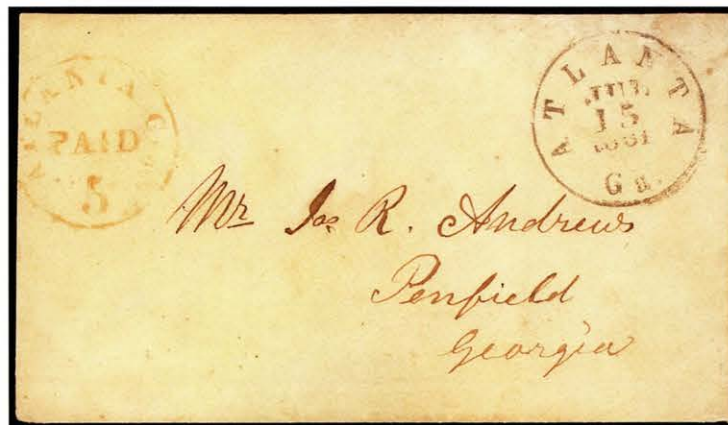 ATLANTA
PAID
5
ATLANTA
JUL
15
1861
Ga.
Mr Jas R. Andrews
Penfield
Georgia